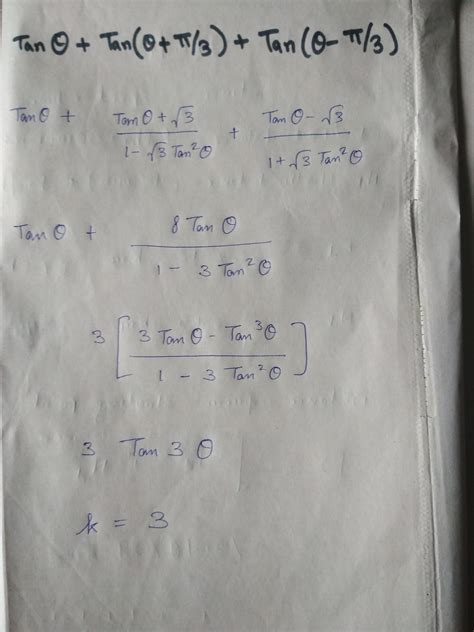 Tan θ + Tan(θ + π/3) + Tan(θ - π/3)
Tanθ + (Tanθ + √3)/(1 - √3 Tan²θ) + (Tanθ - √3)/(1 + √3 Tan²θ)
Tan θ + (8 Tan θ)/(1 - 3 Tan²θ)
3 [(3 Tan θ - Tan³θ)/(1 - 3 Tan²θ)]
3 Tan 3 θ
k = 3